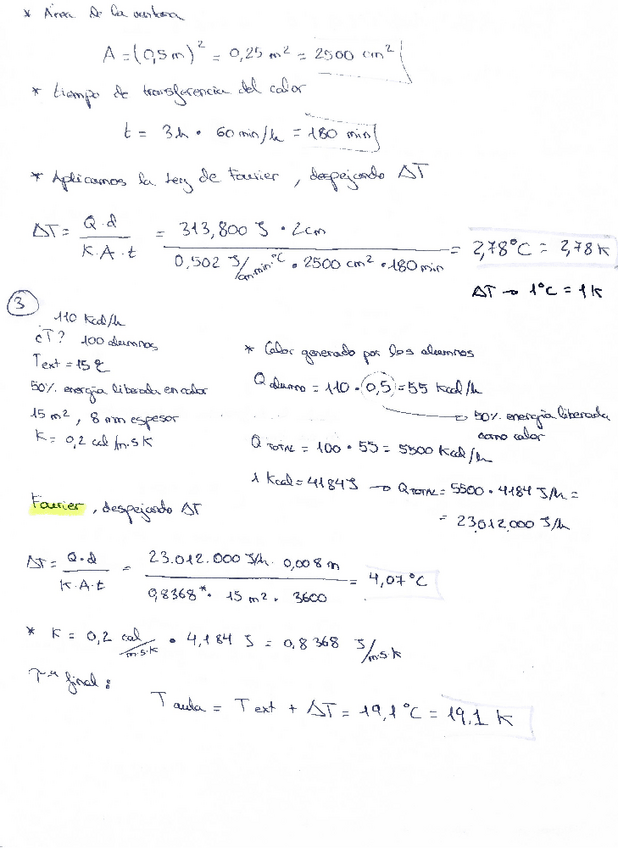 * Área de la ventana
A = (0,5 m)² = 0,25 m² = 2500 cm²
* tiempo de transferencia del calor
t = 3h · 60 min/h = 180 min
* Aplicamos la ley de Fourier, despejando ΔT
ΔT = Q·d / K.A.t = 313,800 J · 2cm / 0,502 J/cm·min·°C · 2500 cm² · 180 min = 2,78°C = 2,78 K
ΔT → 1°C = 1 K
③
110 Kcal/h
¿T? 100 alumnos
Text = 15 ºC
50% energía liberada en calor
15 m², 8 mm espesor
K = 0,2 cal/m.s.K
* Calor generado por los alumnos
Q alumno = 110 · 0,5 = 55 Kcal/h
→ 50% energía liberada
como calor
Q TOTAL = 100 · 55 = 5500 Kcal/h
1 Kcal = 4184 J → Q TOTAL = 5500 · 4184 J/h =
= 23.012.000 J/h
Fourier, despejando ΔT
ΔT = Q·d / K·A·t = 23.012.000 J/h · 0,008 m / 0,8368* · 15 m² · 3600 = 4,07°C
* K = 0,2 cal/m·s·K · 4,184 J = 0,8368 J/m.s.K
Tª final:
T aula = Text + ΔT = 19,1°C = 19,1 K